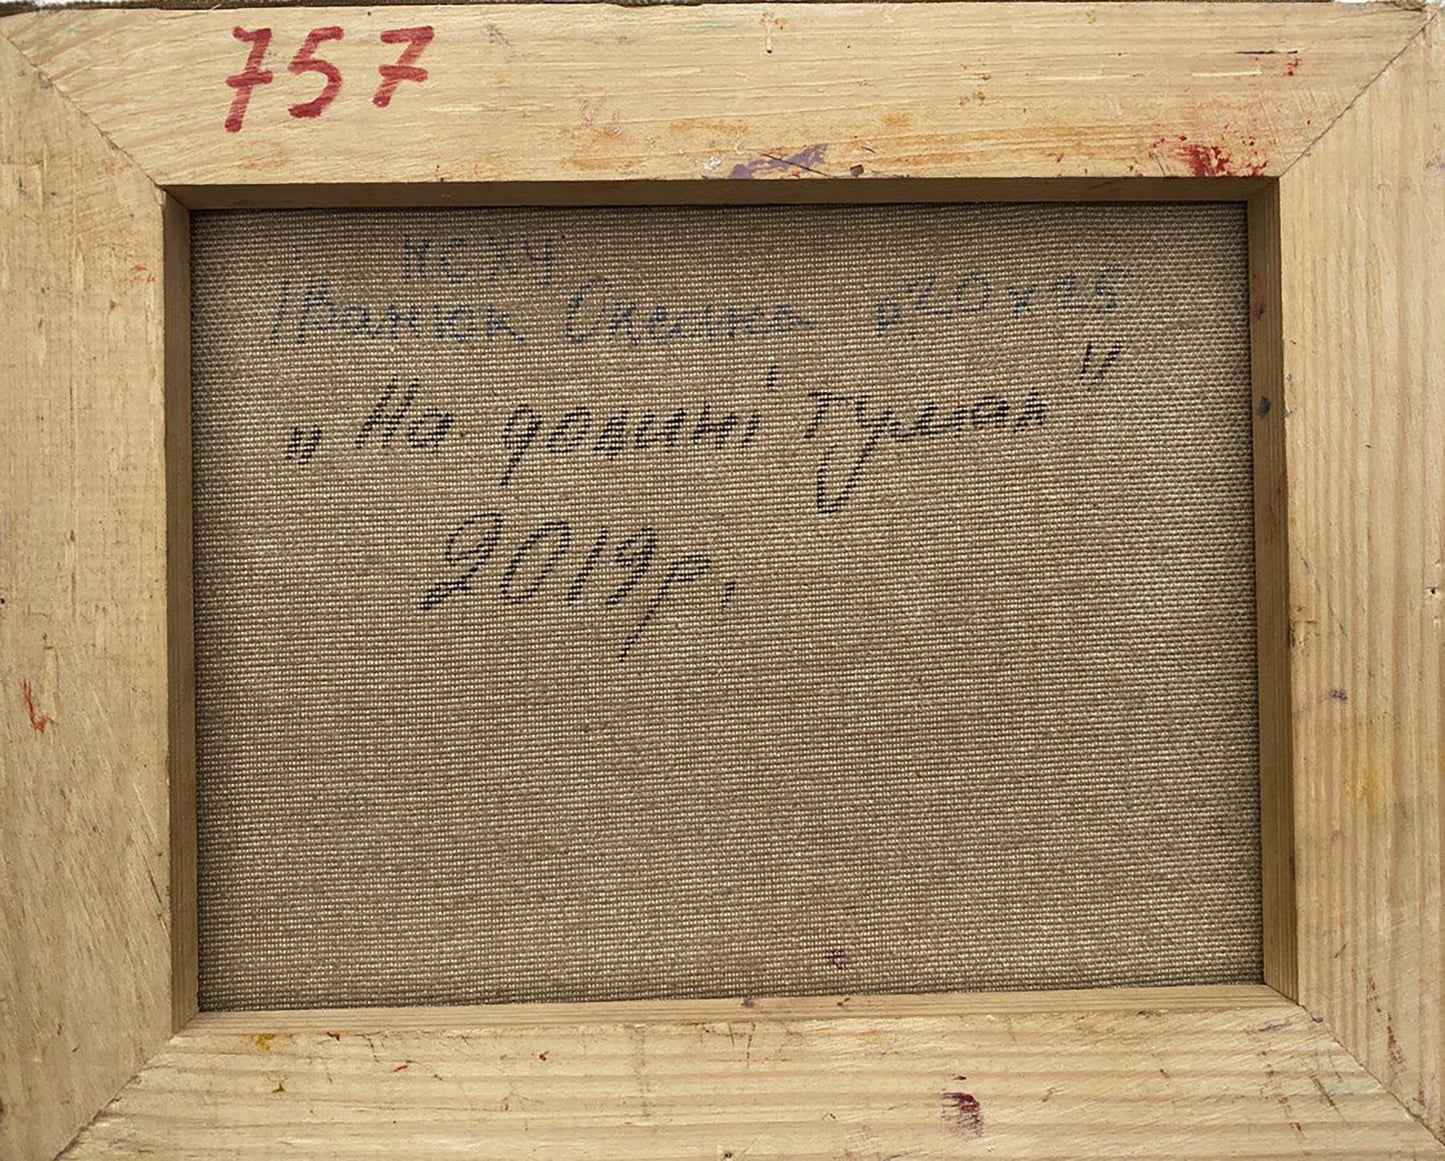 757
НСХУ
Іванюк Оксана р.20х25
„На долині туман"
2019р.